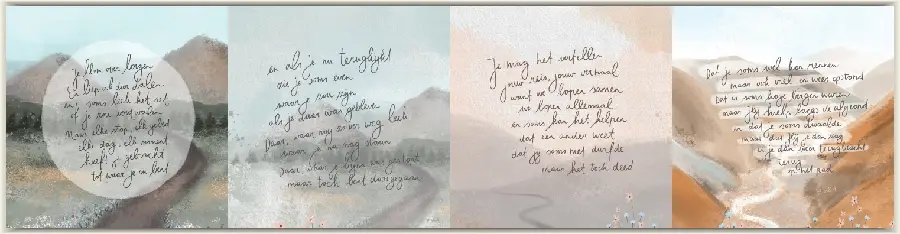 Je klom over bergen
en liep al door dalen
en soms leek het set
of je zou verdwalen
Maar elke stap, elk gebed
elke dag, elk moment
heeft je gebracht
tot waar je nu bent
en als je nu terugkijkt
zie je soms even
waar je zou zijn
als je daar was gebleven
Daar, waar nog zo ver weg leek
waar je nu mag staan
daar, waar je bijna was gestopt
maar toch bent doorgegaan
Je mag het vertellen
jouw reis, jouw verhaal
want we lopen samen
we lopen allemaal
en soms kan het helpen
dat een ander weet
dat je soms niet durfde
maar het toch deed
Dat je soms wel kon rennen
maar ook viel en weer opstond
Dat er soms hoge bergen waren
maar jij steeds
en dat je soms dwaalde
maar dat jij elke dag
terug